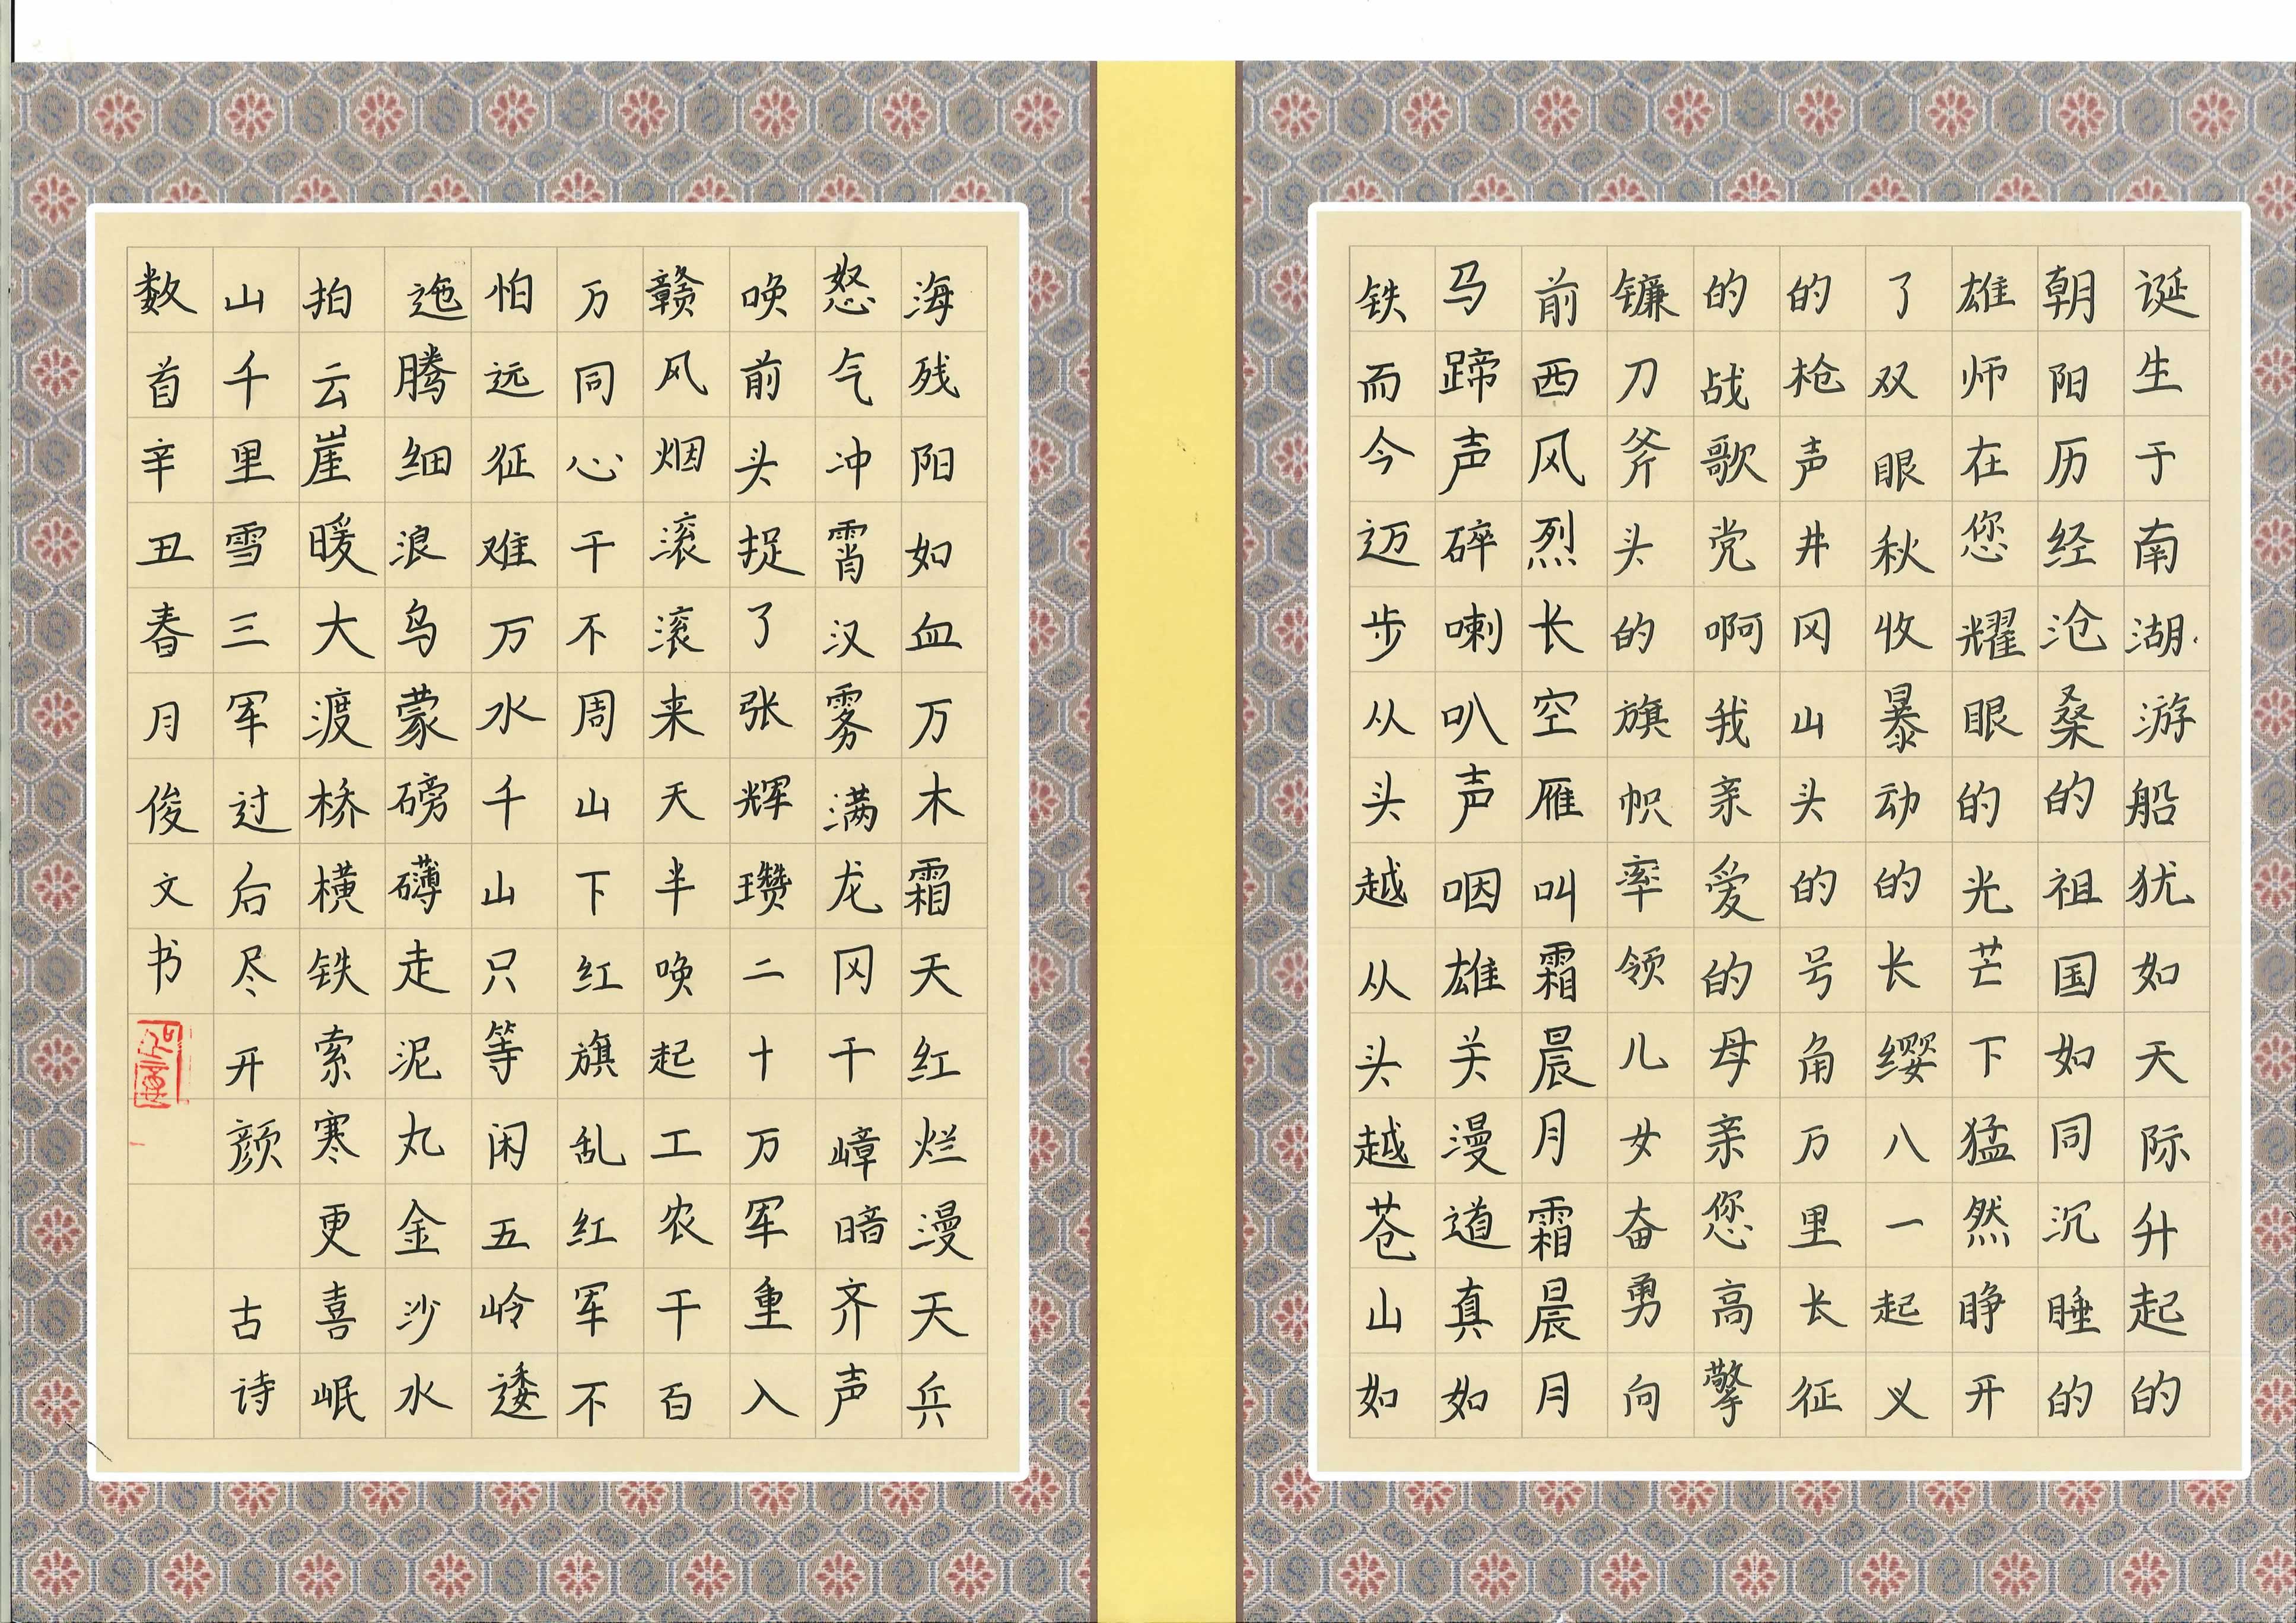 诞生于南湖游船犹如天际升起的
朝阳历经沧桑的祖国如同沉睡的
雄师在您耀眼的光芒下猛然睁开
了双眼秋收暴动的长缨八一起义
的枪声井冈山头的号角万里长征
的战歌党啊我亲爱的母亲您高擎
镰刀斧头的旗帜率领儿女奋勇向
前西风烈长空雁叫霜晨月霜晨月
马蹄声碎喇叭声咽雄关漫道真如
铁而今迈步从头越从头越苍山如
海残阳如血万木霜天红烂漫天兵
怒气冲霄汉雾满龙冈千嶂暗齐声
唤前头捉了张辉瓒二十万军重入
赣风烟滚滚来天半唤起工农千百
万同心干不周山下红旗乱红军不
怕远征难万水千山只等闲五岭逶
迤腾细浪乌蒙磅礴走泥丸金沙水
拍云崖暖大渡桥横铁索寒更喜岷
山千里雪三军过后尽开颜 古诗
数首辛丑春月俊文书